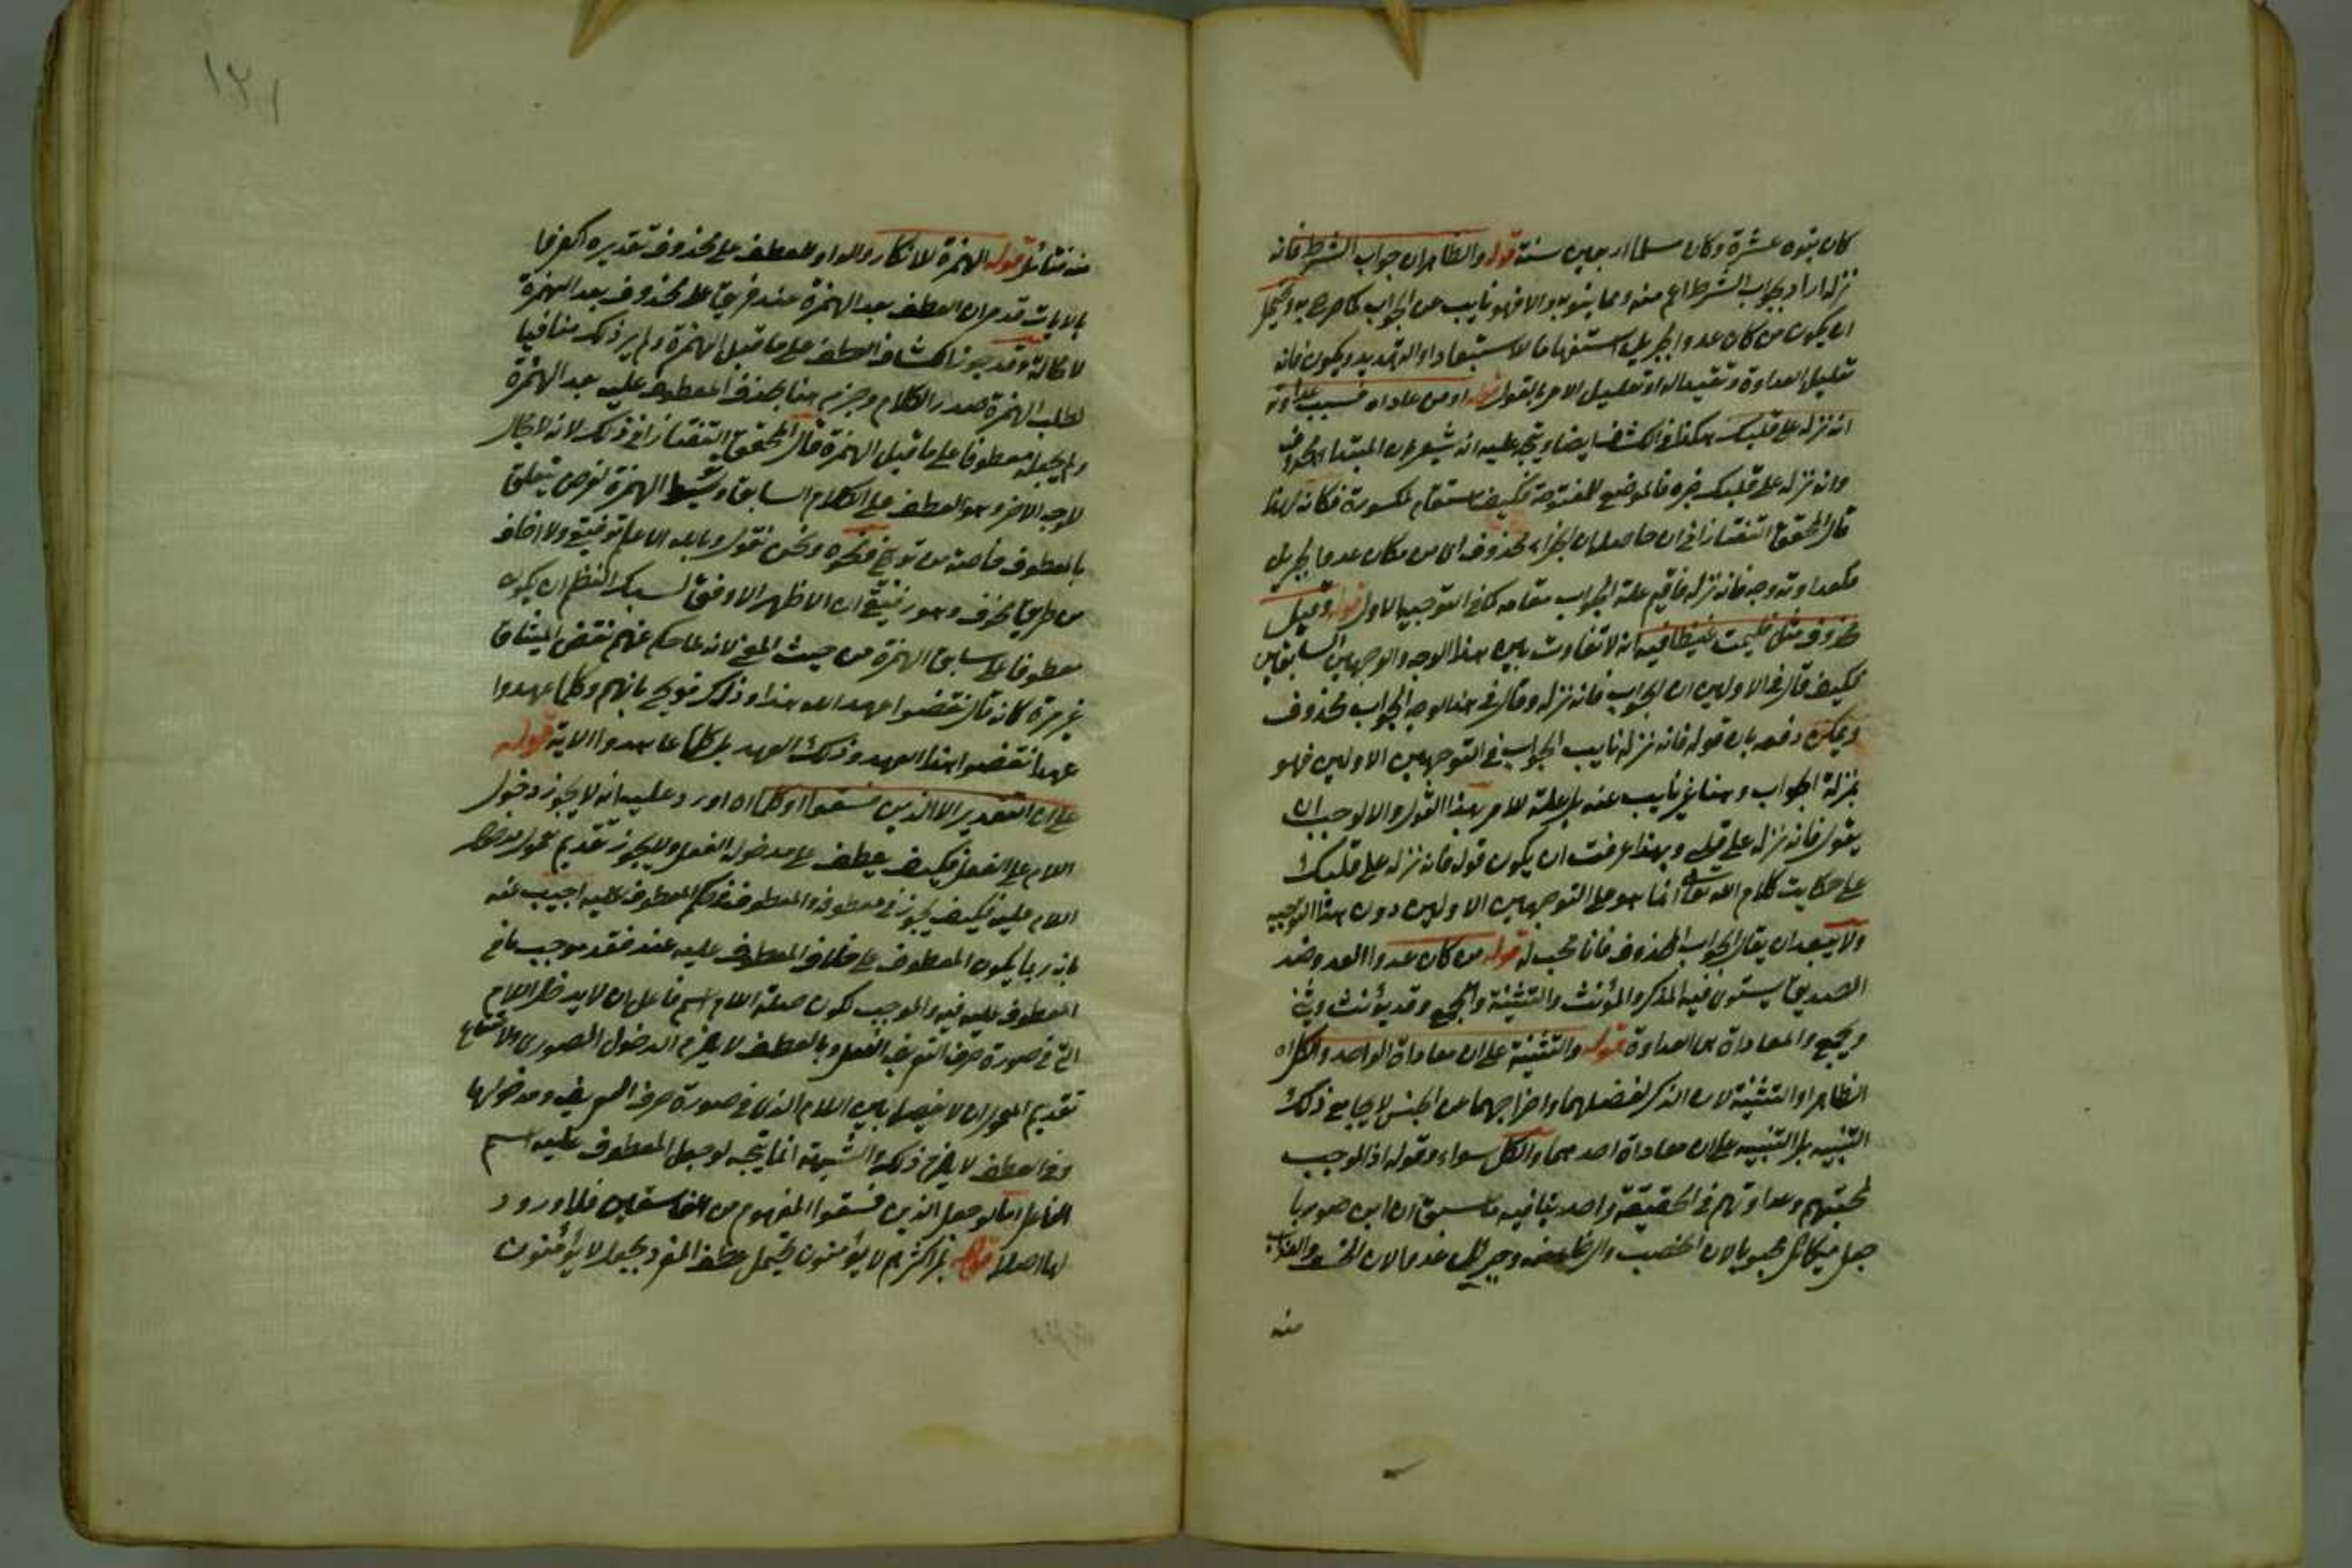 كان بنوه عشرة وكان سلما اربعين سنة قوله والظاهر ان جواب الشرط فانه
نزله اراد بجواب الشرط اعم منه ومما ينوبه والا فهو نايب عن الجواب كما صرح به ويحتمل
ان يكون من كان عدوا لجبريل استفهاما للاستبعاد او التهديد ويكون فانه
تعليل العداوة وتقييدا له او تعليل الامر بالقول قوله او من عاداه فسبب عداوته
انه نزله على قلبك هكذا في الكشاف ايضا ويتجه عليه انه يشعر بان المبتداء محذوف
وانه نزله على قلبك خبره فالموضع للمفتوحة فكيف استقام المكسورة فكانه لهذا
قال المحقق التفتازاني ان حاصله ان الجزاء محذوف اى من كان عدوا لجبريل
فلعداوته وجه فانه نزله فاقيم علة الجواب مقامه كما في التوجيه الاول قوله وقيل
محذوف مثل فليمت غيظا فيه انه لا تفاوت بين هذا الوجه والوجهين السابقين
فكيف قال في الاولين ان الجواب فانه نزله وقال في هذا الوجه الجواب محذوف
ويمكن دفعه بان قوله فانه نزله نايب الجواب في التوجيهين الاولين فهو
بمنزلة الجواب وهنا غير نايب عنه بل علة للامر بهذا القول والا لوجب ان
يقول فانه نزله على قلبى وبهذا عرفت ان يكون قوله فانه نزله على قلبك
على حكايت كلام الله تعالى انما هو على التوجيهين الاولين دون هذا التوجيه
ولا يبعد ان يقال الجواب المحذوف فانا محب له قوله من كان عدوا العدو ضد
الصديق يستوى فيه المذكر والمؤنث والتثنية والجمع وقد يؤنث ويثنى
ويجمع والمعاداة من العداوة قوله والتثنية على ان معاداة الواحد والكل اه
الظاهر او التثنية لان الذكر لفضلهما واخراجهما عن الجنس لا يجامع ذلك
التنبيه بل التنبيه على ان معاداة احدهما والكل سواء وقوله اذ الموجب
لمحبتهم وعداوتهم في الحقيقة واحد ينافيه ما سبق ان ابن صوريا
جعل ميكائل محبوبا لان الخصب والرخاء منه وجبريل عدوا لان الخسف والعذاب
منه
منه فتأمل قوله الهمزة للانكار والواو للعطف على محذوف تقديره اكفروا
بالايات قد مر ان العطف بعد الهمزة عند فريق على محذوف بعد الهمزة
لا محالة وقد جوز الكشاف العطف على ما قبل الهمزة ولم ير ذلك منافيا
لطلب الهمزة صدر الكلام وجزم هنا بحذف المعطوف عليه بعد الهمزة
ولم يجعله معطوفا على ما قبل الهمزة قال المحقق التفتازاني ذلك لانه لا مجال
للوجه الاخر وهو العطف على الكلام السابق وتوسط الهمزة لغرض يتعلق
بالمعطوف خاصة من توبيخ ونحوه ونحن نقول وبالله الاعلم توفيقي ولا اخاف
من طريق مخرف وهو رفيقي ان الاظهر الاوفق لسبك النظم ان يكون
معطوفا على سابق الهمزة من حيث المعنى لانه لما حكم عنهم نقض الميثاق
غير مرة كانه قال نقضوا عهد الله هذا وذلك فوبخ بانهم وكلما عهدوا
عهدا نقضوا هذا العهد وذلك العهد بل كلما عاهدوا الاية قوله
على ان التقدير الا الذين فسقوا او كلما اه اورد عليه انه لا يجوز دخول
اللام على الفعل فكيف يعطف على مدخوله الفعل ولا يجوز تقديم معمول مدخول
اللام عليه فكيف يجوز في معطوفه والمعطوف في حكم المعطوف عليه اجيب عنه
بانه ربما يكون المعطوف على خلاف المعطوف عليه عند فقد موجب ما في
المعطوف عليه فيه والموجب لكون صلة اللام اسم فاعل ان لا يدخل اللام
التي في صورة حرف التعريف الفعل وبالعطف لا يلزم الدخول الصورى ولامتناع
تقديم المعمول ان لا يفصل بين اللام الذى في صورة حرف التعريف ومدخولها
وفي العطف لا يلزم ذلك والشبهة انما يتجه لو جعل المعطوف عليه اسم
الفاعل اما لو جعل الذين فسقوا المفهوم من الفاسقين فلا ورود
لها اصلا قوله بل اكثرهم لا يؤمنون يحتمل عطف المفرد بجعل لا يؤمنون